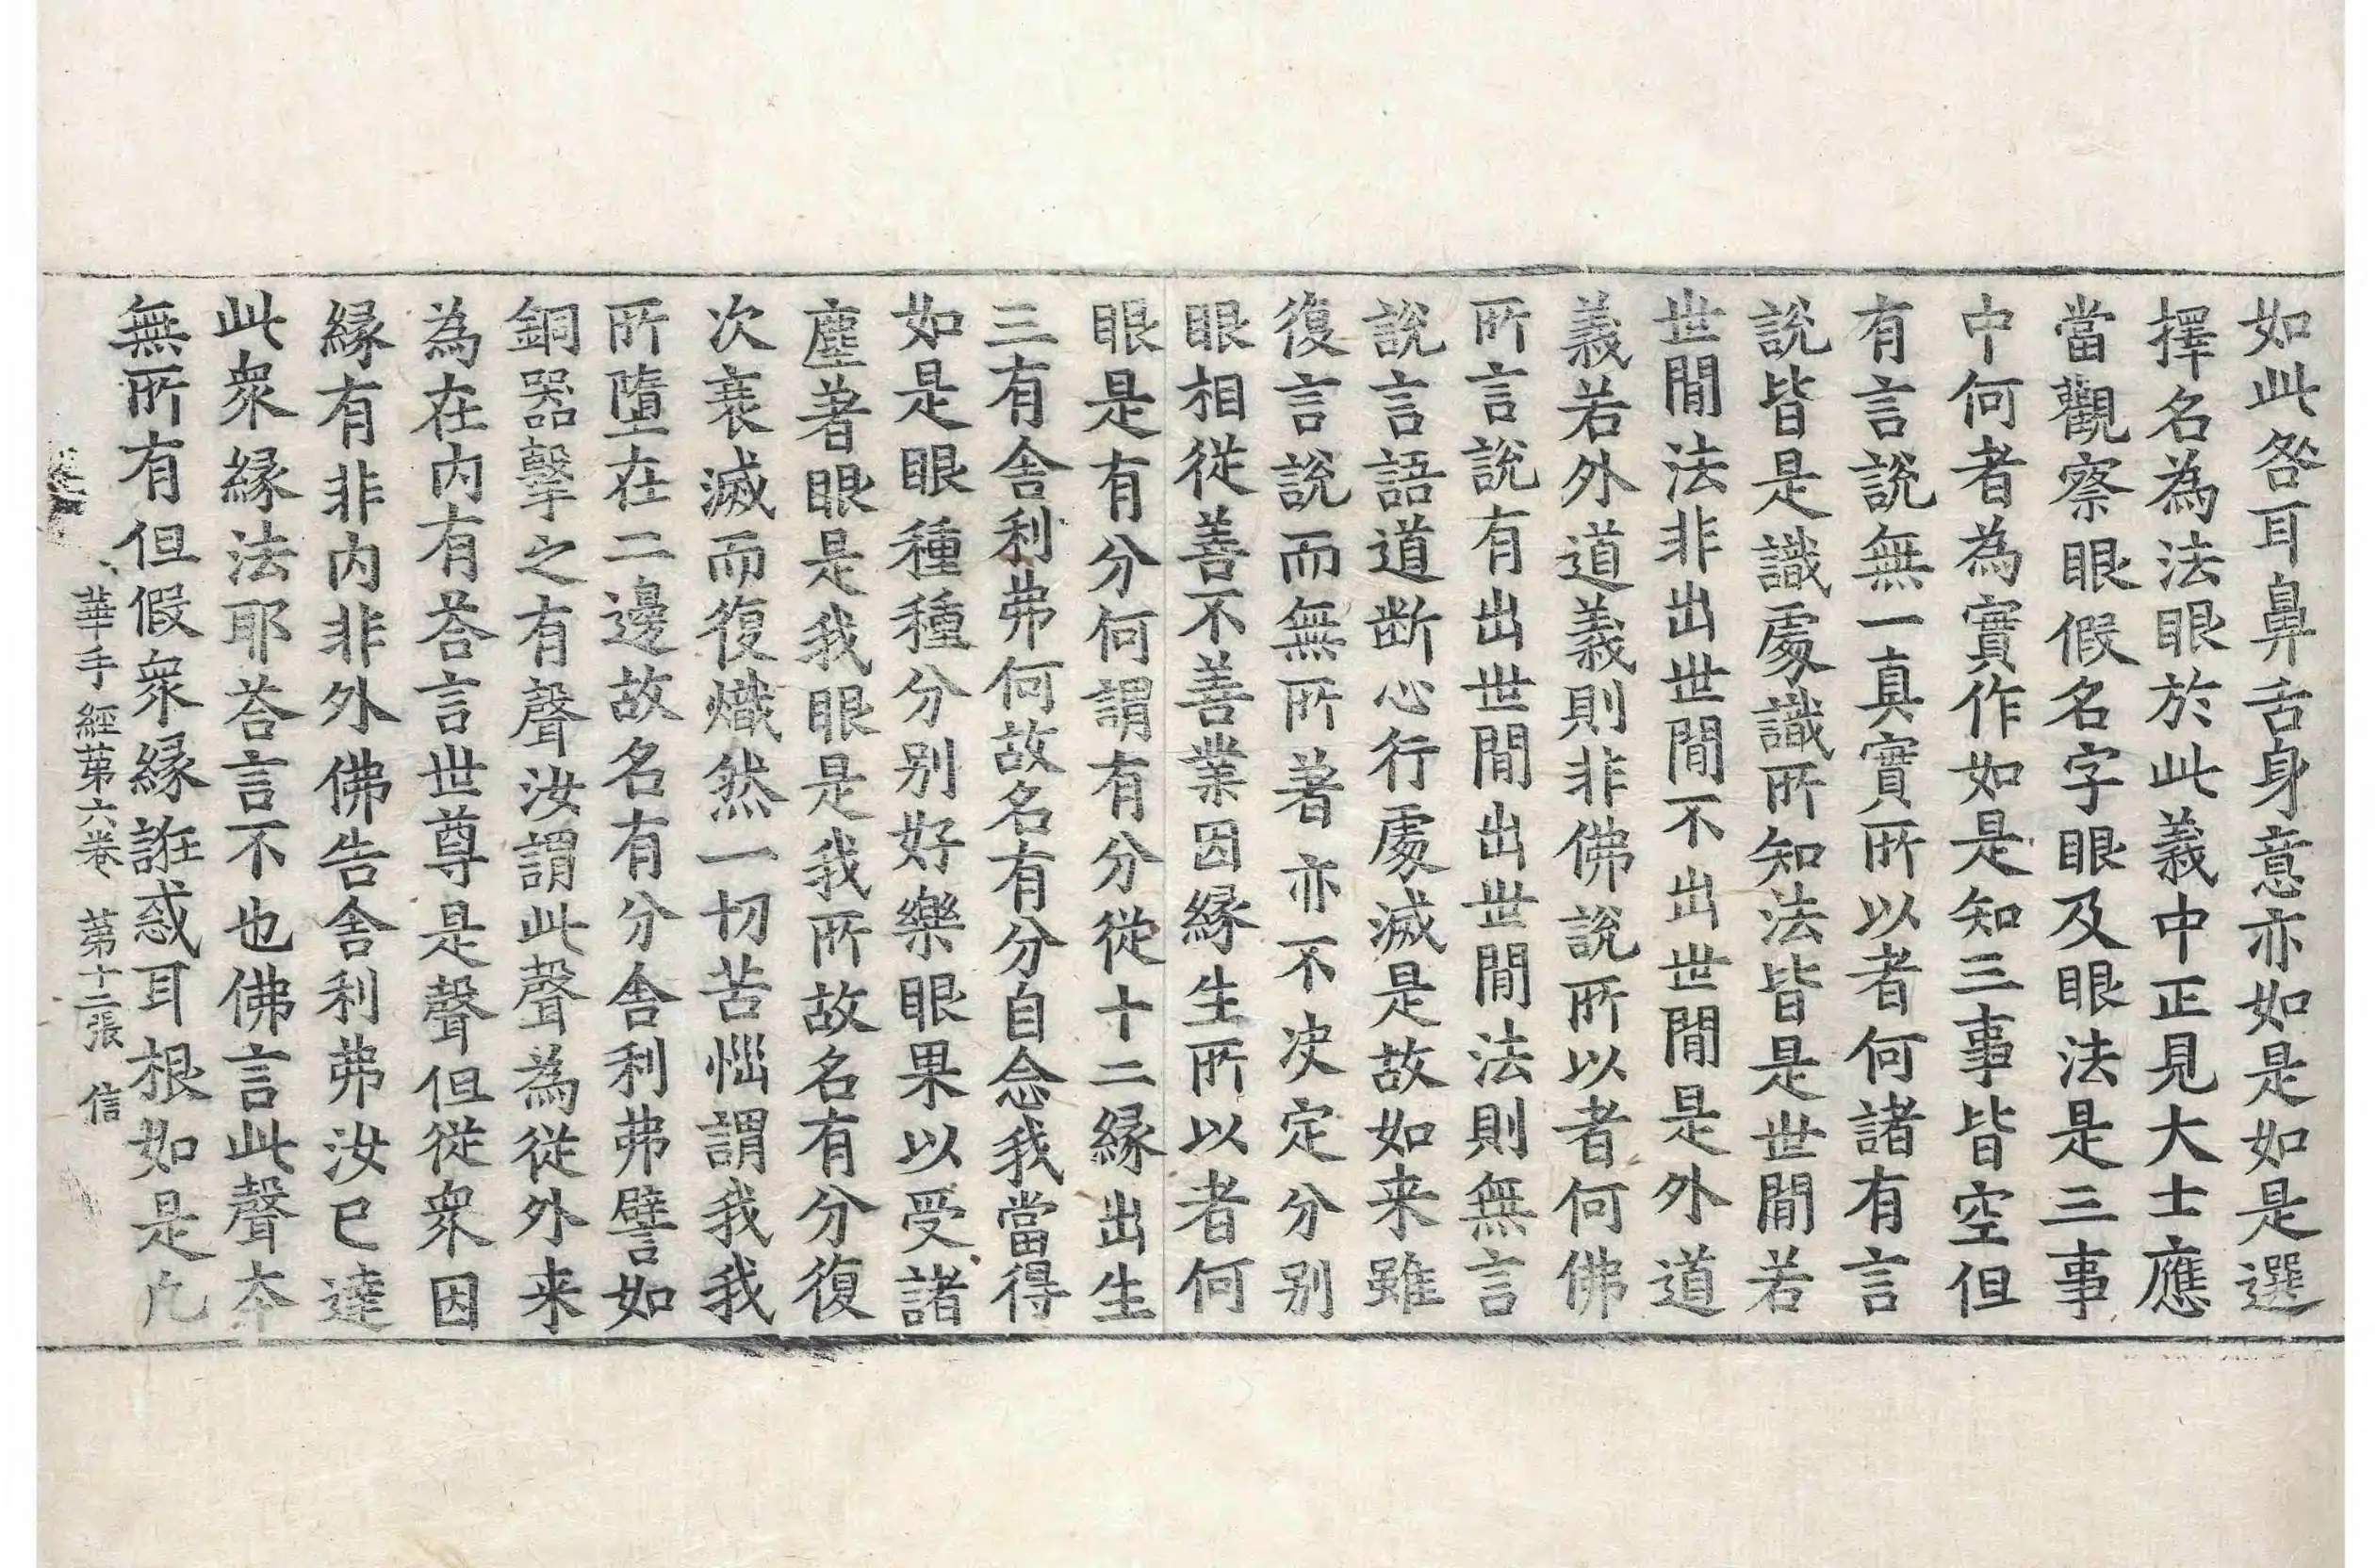 如此咎耳鼻舌身意亦如是如是選
擇名為法眼於此義中正見大士應
當觀察眼假名字眼及眼法是三事
中何者為實作如是知三事皆空但
有言說無一真實所以者何諸有言
說皆是識處識所知法皆是世間若
世間法非出世間不出世間是外道
義若外道義則非佛說所以者何佛
所言說有出世間出世間法則無言
說言語道断心行處滅是故如来雖
復言說而無所著亦不决定分别
眼相從善不善業因緣生所以者何
眼是有分何謂有分從十二緣出生
三有舍利弗何故名有分自念我當得
如是眼種種分别好樂眼果以受諸
塵著眼是我眼是我所故名有分復
次衰滅而復熾然一切苦惱謂我我
所墮在二邊故名有分舍利弗譬如
銅器擊之有聲汝謂此聲為從外来
為在内有荅言世尊是聲但從衆因
緣有非内非外佛告舍利弗汝已達
此衆緣法耶荅言不也佛言此聲本
無所有但假衆緣誑惑耳根如是凢
華手經苐六卷 苐十二張 信